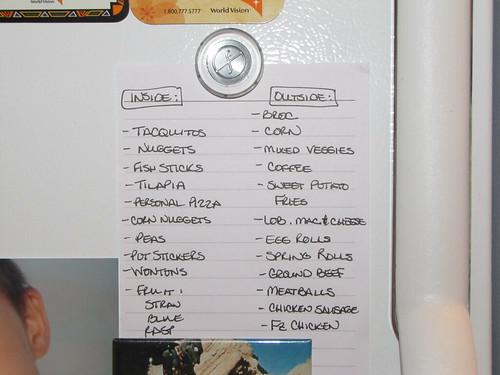 World Vision
1.800.777.5777 World Vision
INSIDE:
- TACQUITOS
- NUGGETS
- FISH STICKS
- TILAPIA
- PERSONAL PIZZA
- CORN NUGGETS
- PEAS
- POT STICKERS
- WONTONS
- FRUIT:
STRAW
BLUE
RASP
OUTSIDE:
- BROC
- CORN
- MIXED VEGGIES
- COFFEE
- SWEET POTATO
FRIES
- LOB. MAC & CHEESE
- EGG ROLLS
- SPRING ROLLS
- GROUND BEEF
- MEATBALLS
- CHICKEN SAUSAGE
- FR CHICKEN